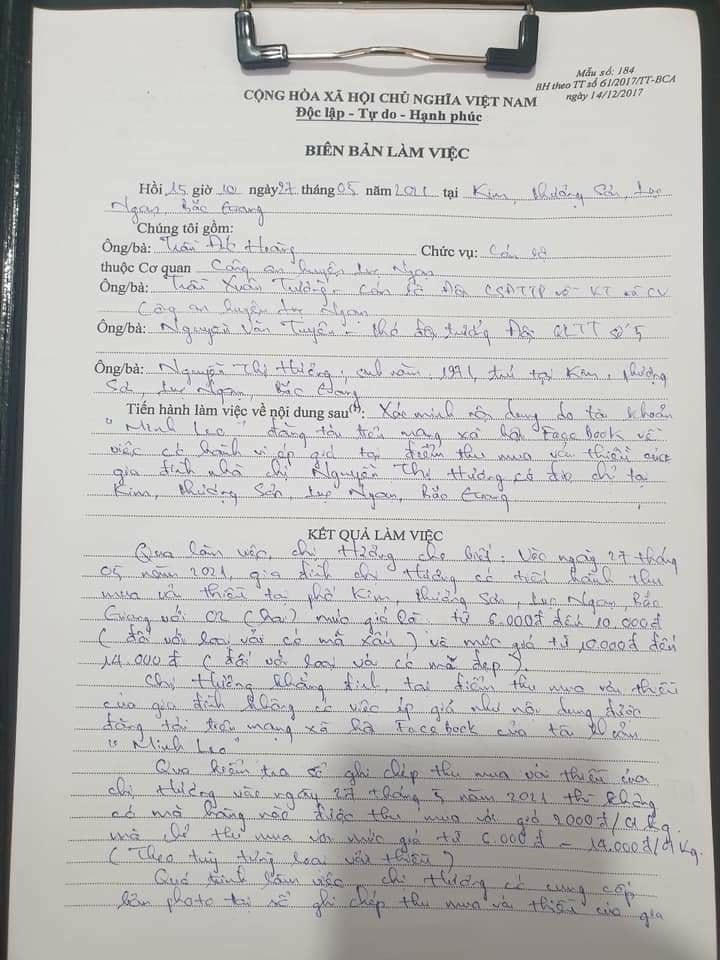 Mẫu số: 184
BH theo TT số 61/2017/TT-BCA
ngày 14/12/2017
CỘNG HÒA XÃ HỘI CHỦ NGHĨA VIỆT NAM
Độc lập - Tự do - Hạnh phúc
BIÊN BẢN LÀM VIỆC
Hồi 15 giờ 10 ngày 27 tháng 05 năm 2021 tại Kim, Phượng Sơn, Lục
Ngạn, Bắc Giang
Chúng tôi gồm:
Ông/bà: Trần Hoàng Chức vụ: Cán bộ
thuộc Cơ quan Công an huyện Lục Ngạn
Ông/bà: Trần Xuân Trường - Cán bộ Đội CSĐTTP về KT và CV
Công an huyện Lục Ngạn
Ông/bà: Nguyễn Văn Tuyên - Phó đội trưởng Đội QLTT số 5
Ông/bà: Nguyễn Thị Hường, sinh năm 1971, trú tại Kim, Phượng
Sơn, Lục Ngạn, Bắc Giang
Tiến hành làm việc về nội dung sau(1): Xác minh nội dung do tài khoản
"Minh Leo" đăng tải trên mạng xã hội FaceBook về
việc có hành vi ép giá tại điểm thu mua vải thiều của
gia đình nhà chị Nguyễn Thị Hường có địa chỉ tại
Kim, Phượng Sơn, Lục Ngạn, Bắc Giang
KẾT QUẢ LÀM VIỆC
Qua làm việc, chị Hường cho biết: Vào ngày 27 tháng
05 năm 2021, gia đình chị Hường có tiến hành thu
mua vải thiều tại phố Kim, Phượng Sơn, Lục Ngạn, Bắc
Giang với 02 (hai) mức giá là từ 6.000đ đến 10.000đ
(đối với loại vải có mã xấu) và mức giá từ 10.000đ đến
14.000đ (đối với loại vải có mã đẹp).
Chị Hường khẳng định, tại điểm thu mua vải thiều
của gia đình không có việc ép giá như nội dung được
đăng tải trên mạng xã hội FaceBook của tài khoản
"Minh Leo"
Qua kiểm tra sổ ghi chép thu mua vải thiều của
chị Hường vào ngày 27 tháng 5 năm 2021 thì không
có mã hàng nào được thu mua với giá 2000đ/01kg.
mà chỉ thu mua với mức giá từ 6.000đ - 14.000đ/01Kg.
(Theo tùy từng loại vải thiều)
Quá trình làm việc chị Hường có cung cấp
bản photo tại sổ ghi chép thu mua vải thiều của gia